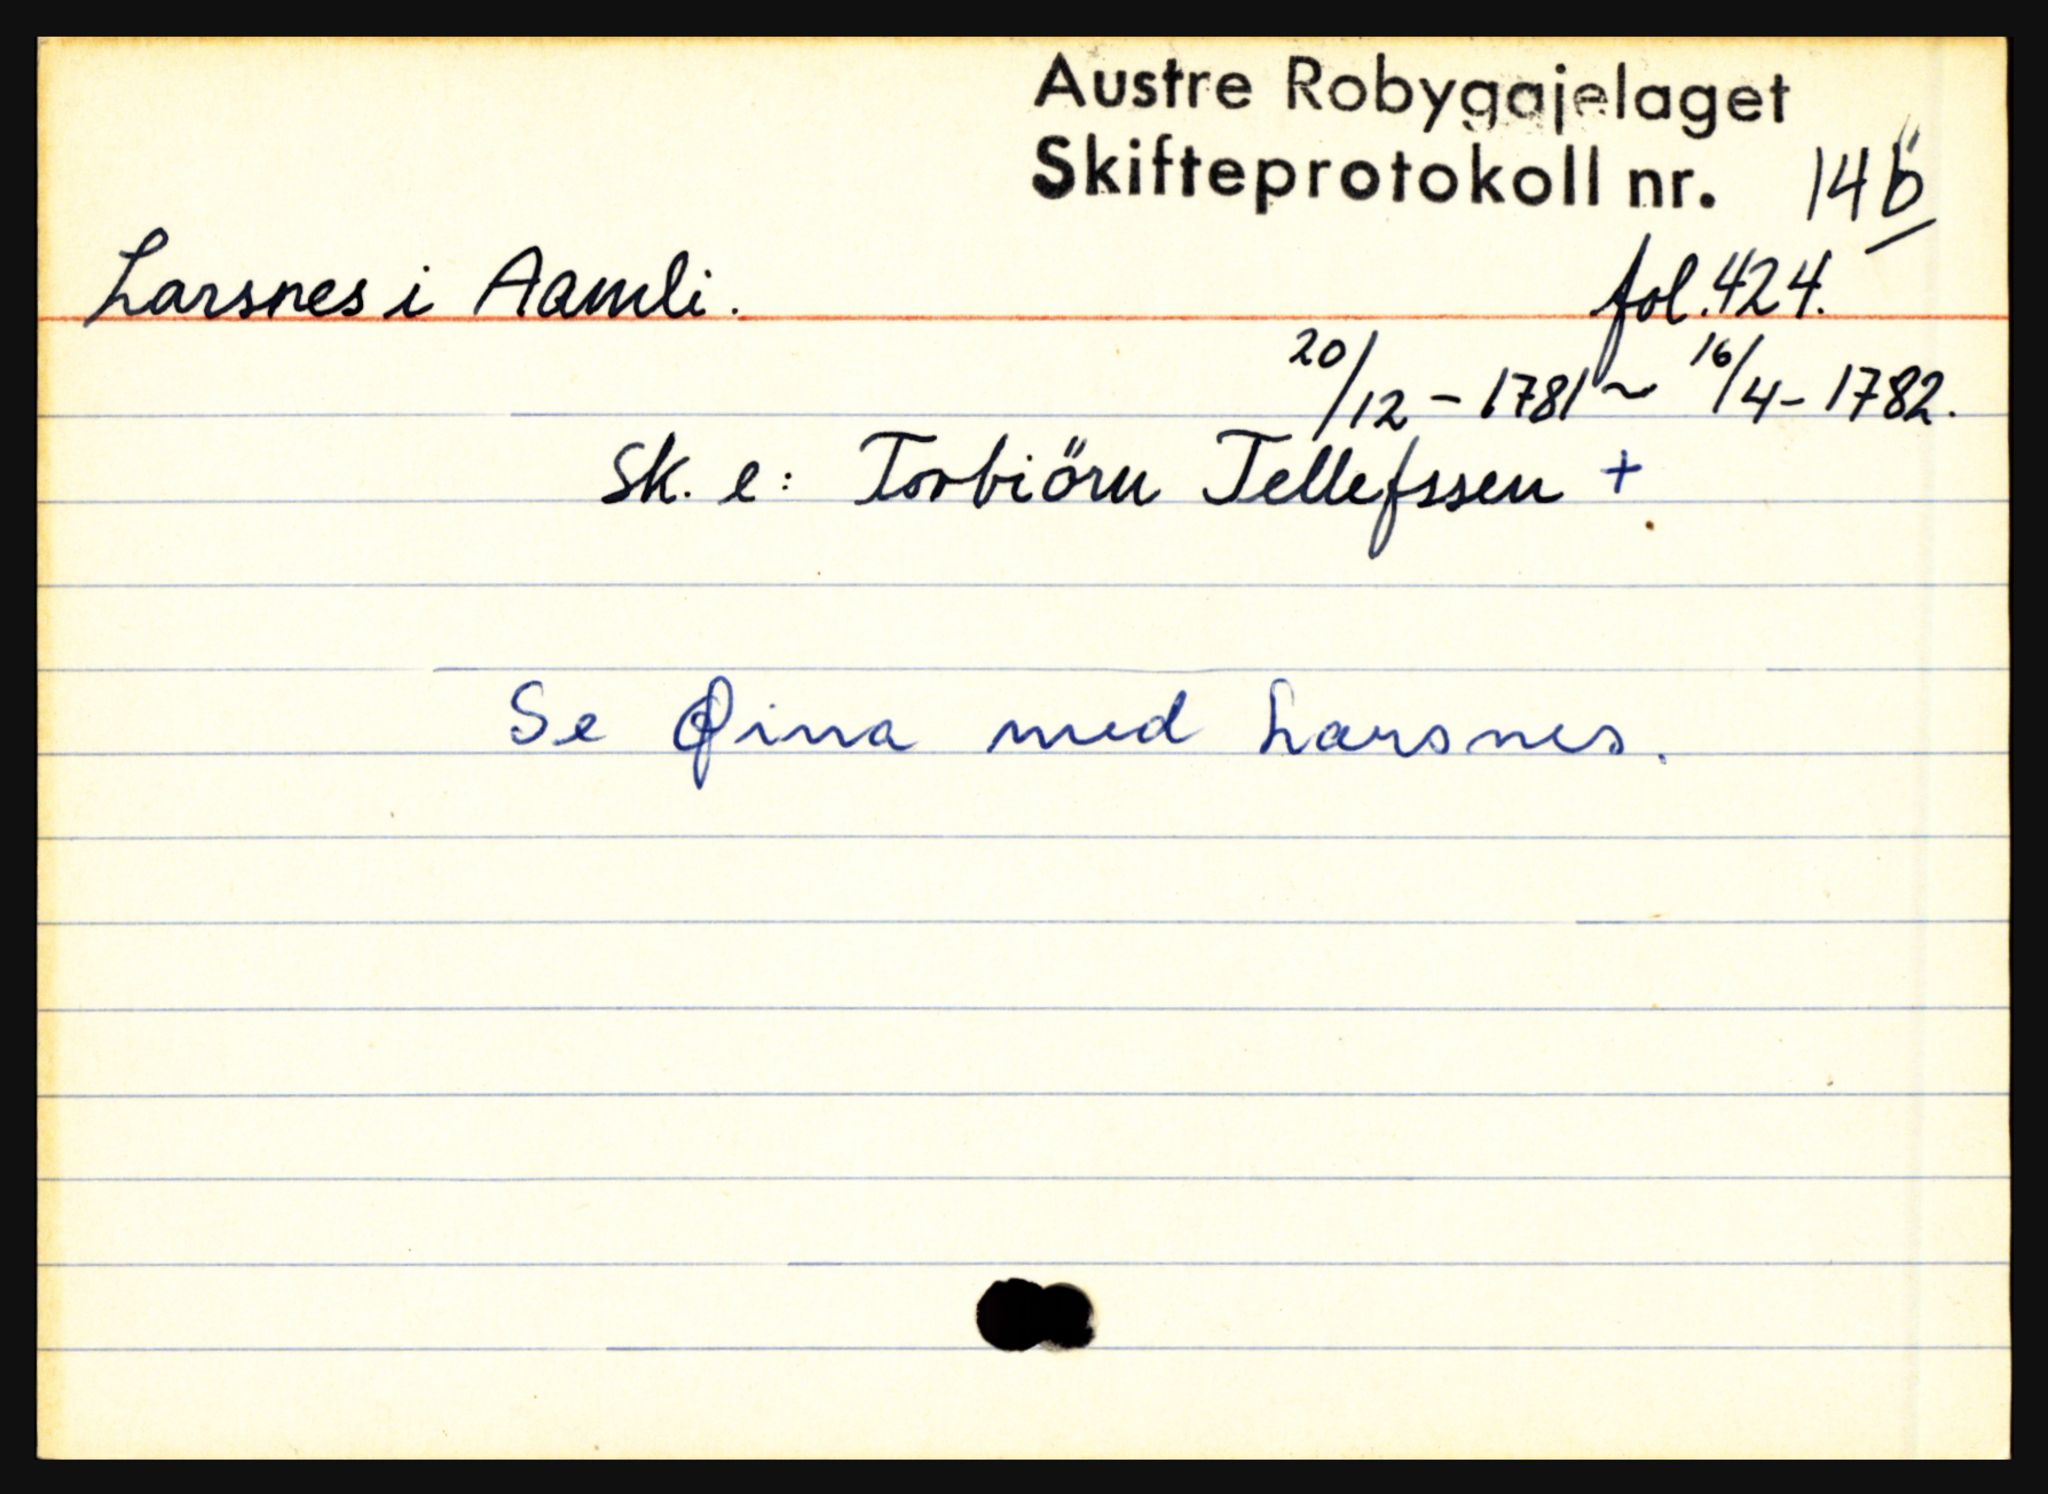 Austre Robygdjelaget
Skifteprotokoll nr. 14b
Larsnes i Aamli. fol. 424.
20/12 - 1781 ~ 16/4 - 1782.
Sk. e: Torbiörn Tellefssen +
Se Øina med Larsnes.